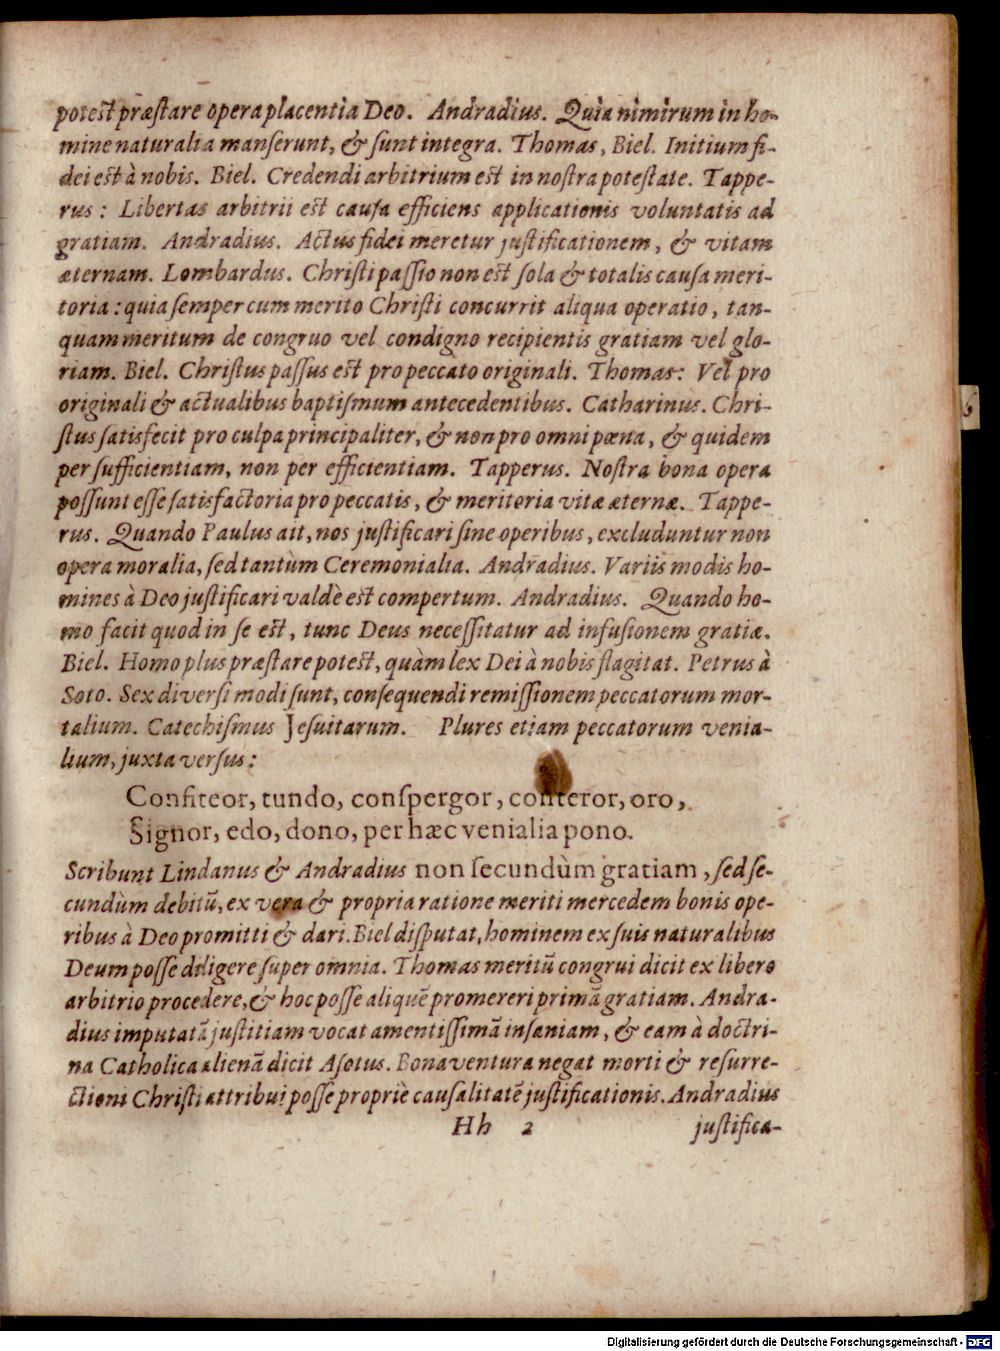 potest præſtare opera placentia Deo. Andradius. Quia nimirum in ho-
mine naturalia manſerunt, & ſunt integra. Thomas, Biel. Initium fi-
dei est à nobis. Biel. Credendi arbitrium est in nostra poteſtate. Tappe-
rus: Libertas arbitrii est cauſa efficiens applicationis voluntatis ad
gratiam. Andradius. Actus fidei meretur juſtificationem, & vitam
æternam. Lombardus. Chriſti paſſio non est ſola & totalis cauſa meri-
toria: quia ſemper cum merito Chriſti concurrit aliqua operatio, tan-
quam meritum de congruo vel condigno recipientis gratiam vel glo-
riam. Biel. Chriſtus paſſus est pro peccato originali. Thomas: Vel pro
originali & actualibus baptiſmum antecedentibus. Catharinus. Chri-
ſtus ſatisfecit pro culpa principaliter, & non pro omni pœna, & quidem
per ſufficientiam, non per efficientiam. Tapperus. Noſtra bona opera
poſſunt eſſe ſatisfactoria pro peccatis, & meritoria vitæ æternæ. Tappe-
rus. Quando Paulus ait, nos juſtificari ſine operibus, excluduntur non
opera moralia, ſed tantùm Ceremonialia. Andradius. Variis modis ho-
mines à Deo juſtificari valdè est compertum. Andradius. Quando ho-
mo facit quod in ſe est, tunc Deus neceſſitatur ad infuſionem gratiæ.
Biel. Homo plus præſtare potest, quàm lex Dei à nobis flagitat. Petrus à
Soto. Sex diverſi modi ſunt, conſequendi remiſſionem peccatorum mor-
talium. Catechiſmus Jeſuitarum. Plures etiam peccatorum venia-
lium, juxta verſus:
Confiteor, tundo, conſpergor, conteror, oro,
Signor, edo, dono, per hæc venialia pono.
Scribunt Lindanus & Andradius non ſecundùm gratiam, ſed ſe-
cundùm debitũ, ex vera & propria ratione meriti mercedem bonis ope-
ribus à Deo promitti & dari. Biel diſputat, hominem ex ſuis naturalibus
Deum poſſe diligere ſuper omnia. Thomas meritũ congrui dicit ex libero
arbitrio procedere, & hoc poſſe aliquẽ promereri primã gratiam. Andra-
dius imputatã juſtitiam vocat amentiſſimã inſaniam, & eam à doctri-
na Catholica alienã dicit Aſotus. Bonaventura negat morti & reſurre-
ctioni Chriſti attribui poſſe propriè cauſalitatẽ juſtificationis. Andradius
Hh 2 juſtifica-
6
Digitalisierung gefördert durch die Deutsche Forschungsgemeinschaft - DFG